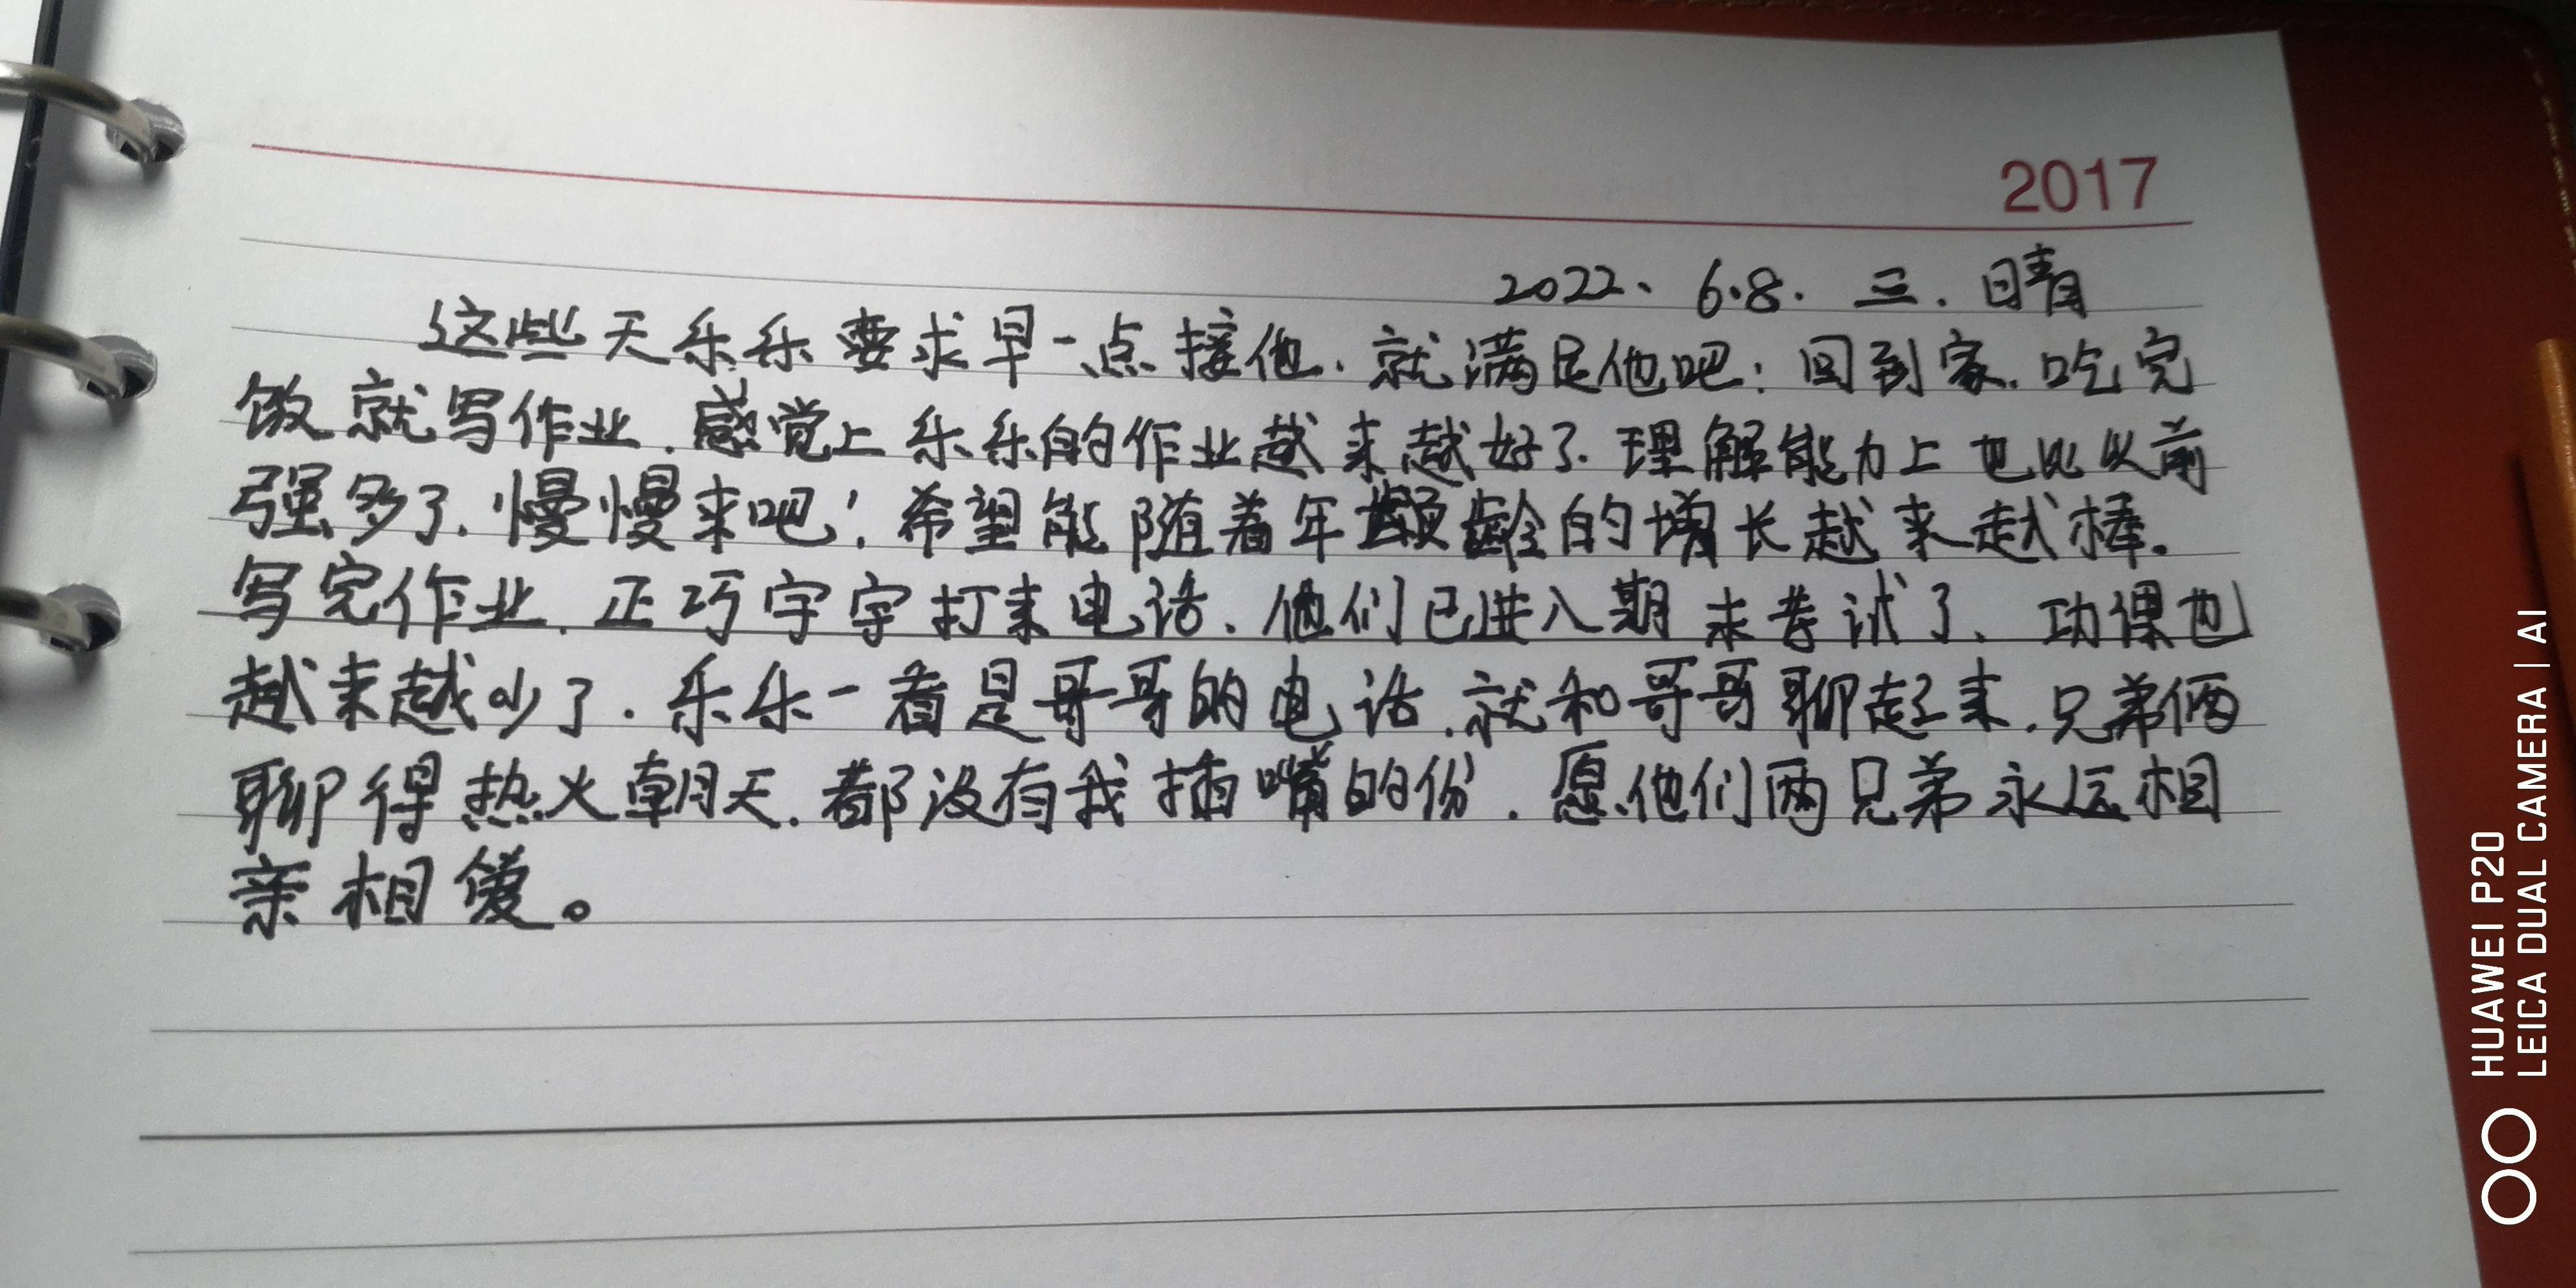 2017
2022、6.8. 三. 晴
这些天乐乐要求早一点接他.就满足他吧!回到家.吃完
饭就写作业.感觉上乐乐的作业越来越好了.理解能力上也比以前
强多了.慢慢来吧!希望能随着年龄的增长越来越棒.
写完作业.正巧宇宇打来电话.他们已进入期末考试了、功课也
越来越少了.乐乐一看是哥哥的电话.就和哥哥聊起来.兄弟俩
聊得热火朝天.都没有我插嘴的份.愿他们两兄弟永远相
亲相爱。
HUAWEI P20
LEICA DUAL CAMERA | AI